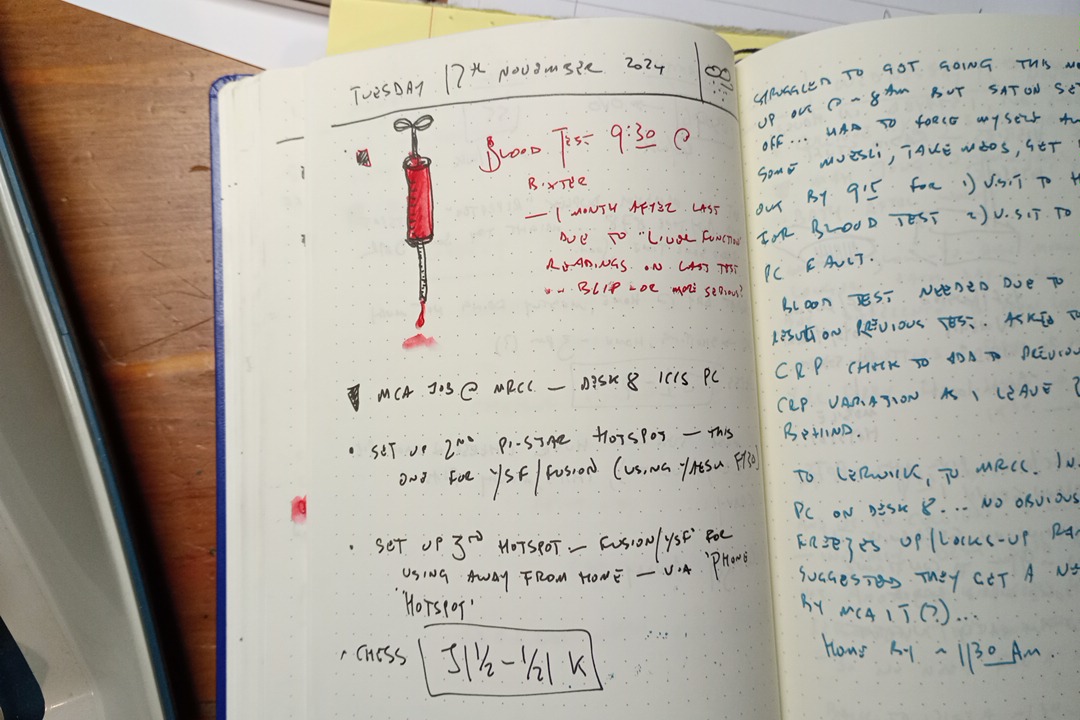 TUESDAY 17TH NOVEMBER 2024
BLOOD TEST 9:30 @
BIXTER
— 1 MONTH AFTER LAST
DUE TO "LIVER FUNCTION"
READINGS ON LAST TEST
BLIP OR MORE SERIOUS?
MCA JOB @ MRCC — DESK 8 ICCS PC
• SET UP 2ND PI-STAR HOTSPOT — THIS
ONE FOR YSF/FUSION (USING YAESU
• SET UP 3RD HOTSPOT — FUSION/YSF FOR
USING AWAY FROM HOME — VIA 'PHONE
'HOTSPOT'
• CHESS J|½-½|K
STRUGGLED TO GOT GOING THIS
UP OK @ ~8AM BUT SAT ON
OFF... HAD TO FORCE MYSELF
SOME MUESLI, TAKE MEDS, GET
OUT BY 915 FOR 1) VISIT TO
FOR BLOOD TEST 2) VISIT TO
PC FAULT.
BLOOD TEST NEEDED DUE TO
RESULT ON PREVIOUS TEST. ASKED
CRP CHECK TO ADD TO PREVIOUS
CRP VARIATION AS I LEAVE
BEHIND.
TO LERWICK, TO MRCC.
PC ON DESK 8... NO OBVIOUS
FREEZES UP/LOCKS-UP
SUGGESTED THEY GET A
BY MCA IT (?)...
HOME BY ~ 1130 AM.